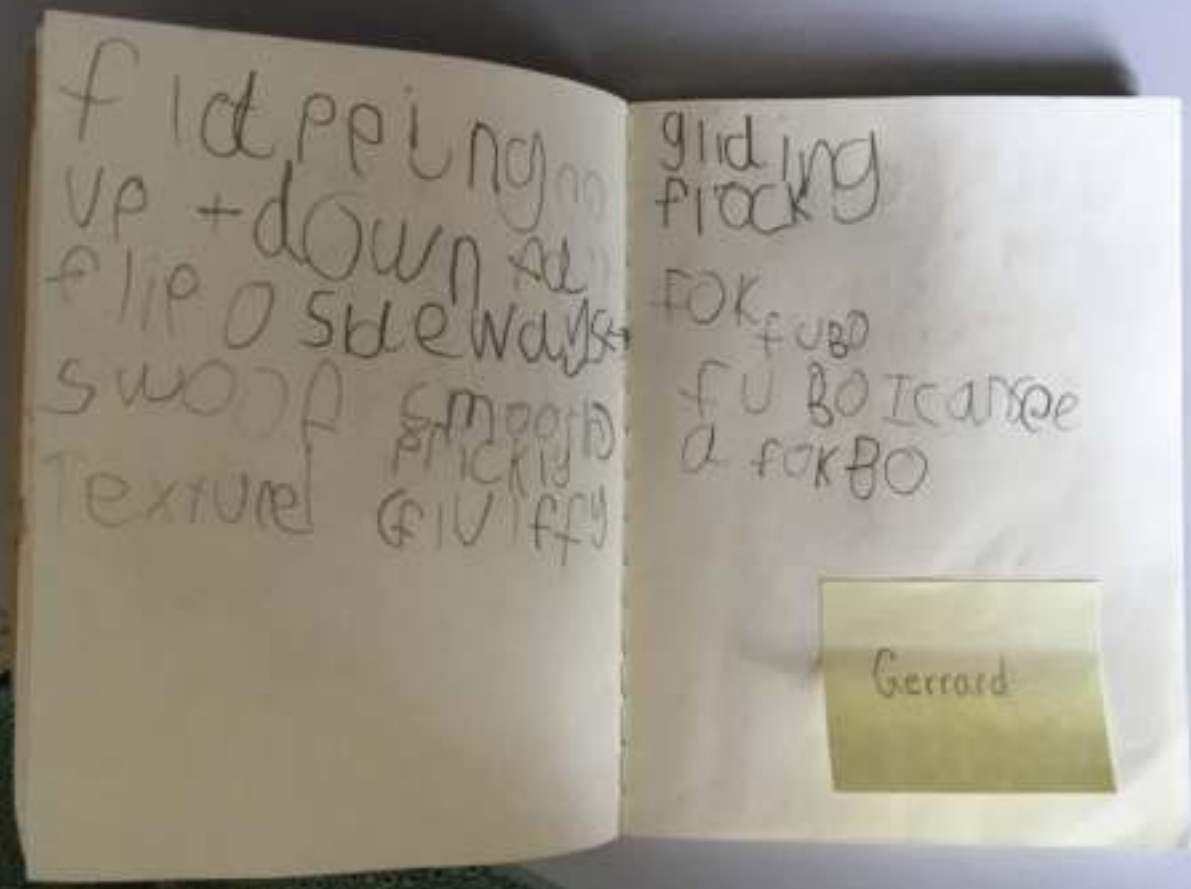 flapping
up + down
flip sideways
swoop smooth
prickly
Textured Gluiffy
gliding
flock
FOK
fUBO
fU BO I can see
a fOKBO
Gerrard